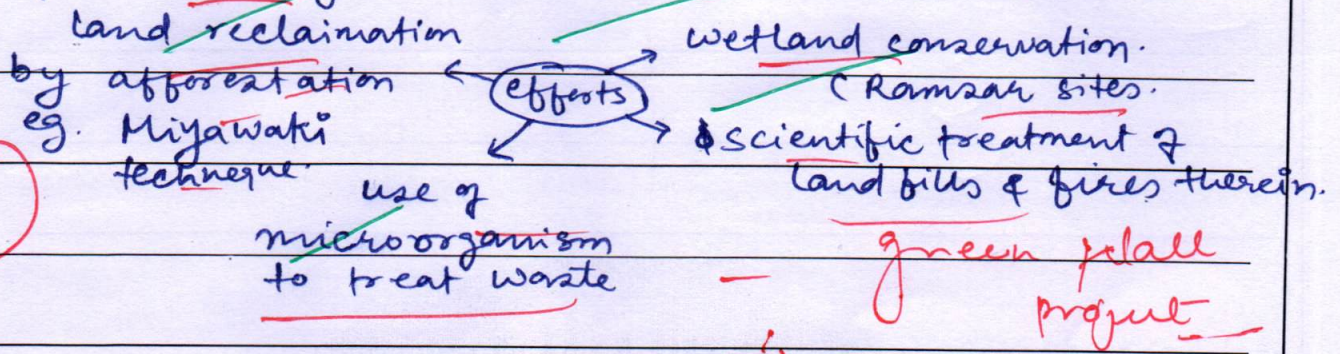 land reclaimation
by afforestation
eg. Miyawaki
technique.
efforts
wetland conservation.
( Ramsar sites.
scientific treatment of
landfills & fires therein.
use of
microorganism
to treat waste
green
project